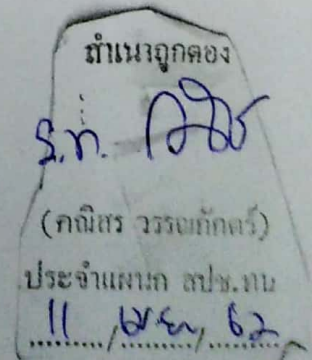 สำเนาถูกต้อง
ร.ท.
(คณิสร วรรณภักตร์)
ประจำแผนก สปช.ทบ
11 / เม.ย. / 62